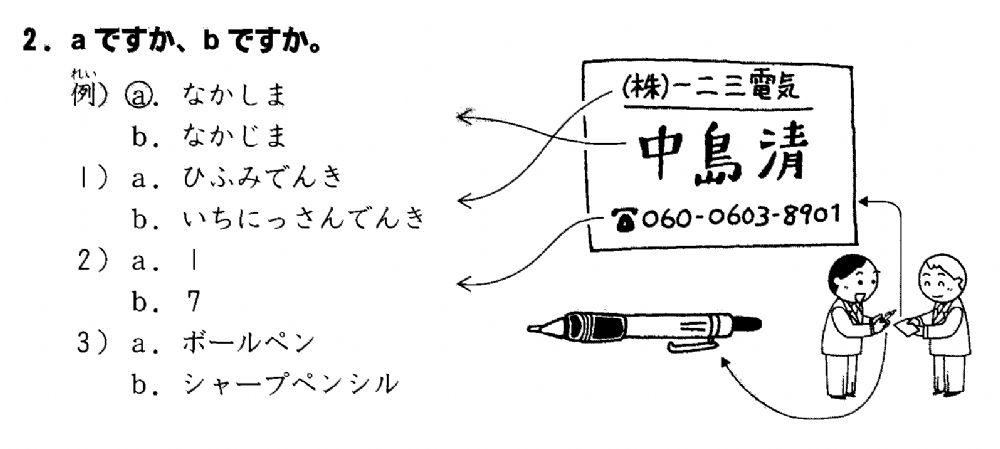 2. aですか、bですか。
れい
例) ⓐ. なかしま
b. なかじま
1) a. ひふみでんき
b. いちにっさんでんき
2) a. 1
b. 7
3) a. ボールペン
b. シャープペンシル
(株)一二三電気
中島清
☎060-0603-8901